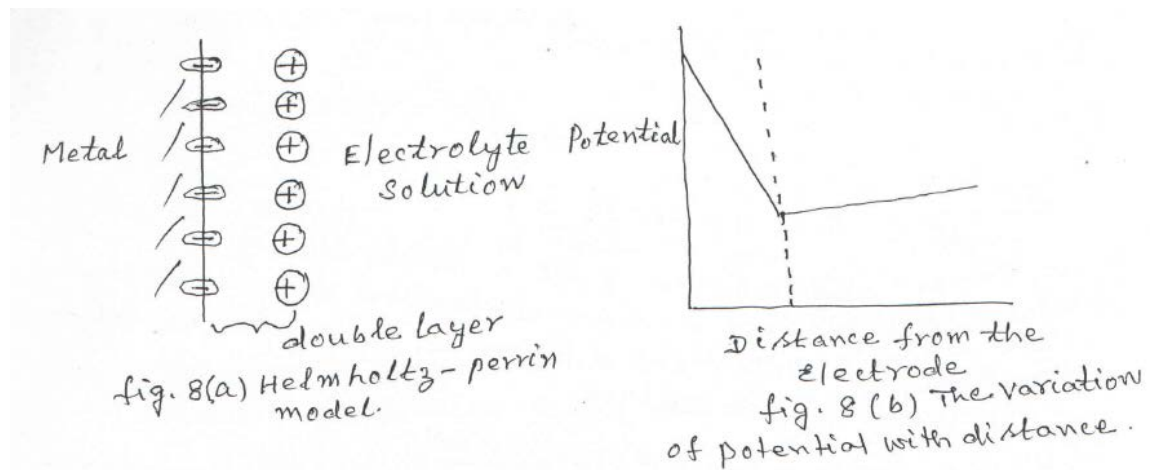 Metal
Electrolyte
solution
double layer
fig. 8(a) Helmholtz-perrin
model.
Potential
Distance from the
Electrode
fig. 8 (b) The variation
of potential with distance.